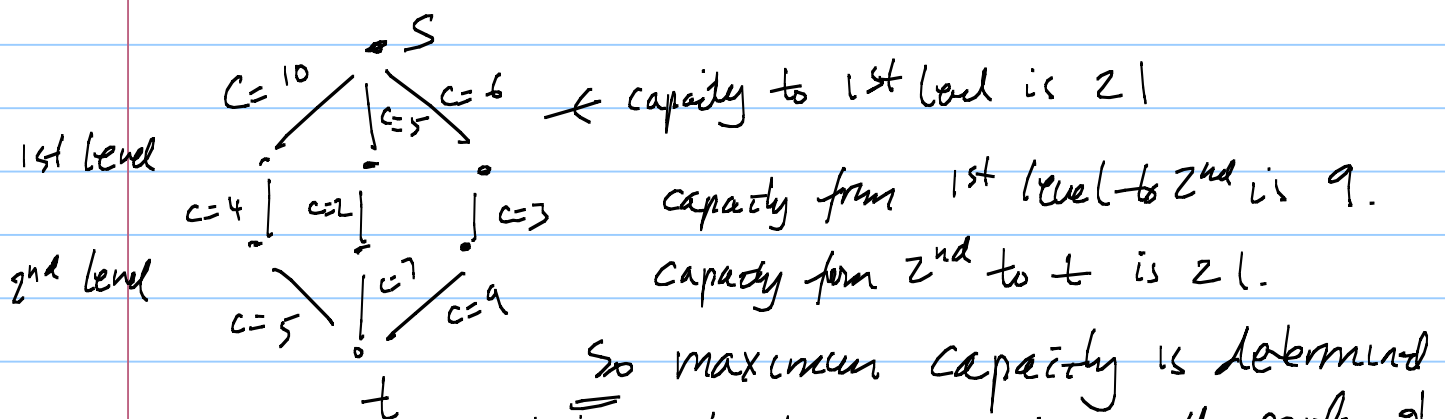 S
C= 10
c=5
c= 6
← capacity to 1st level is 21
1st level
c=4
c=2
c=3
capacity from 1st level to 2nd is 9.
2nd level
capacity form 2nd to t is 21.
c= 5
c=7
c=9
t
So maximum capacity is determined